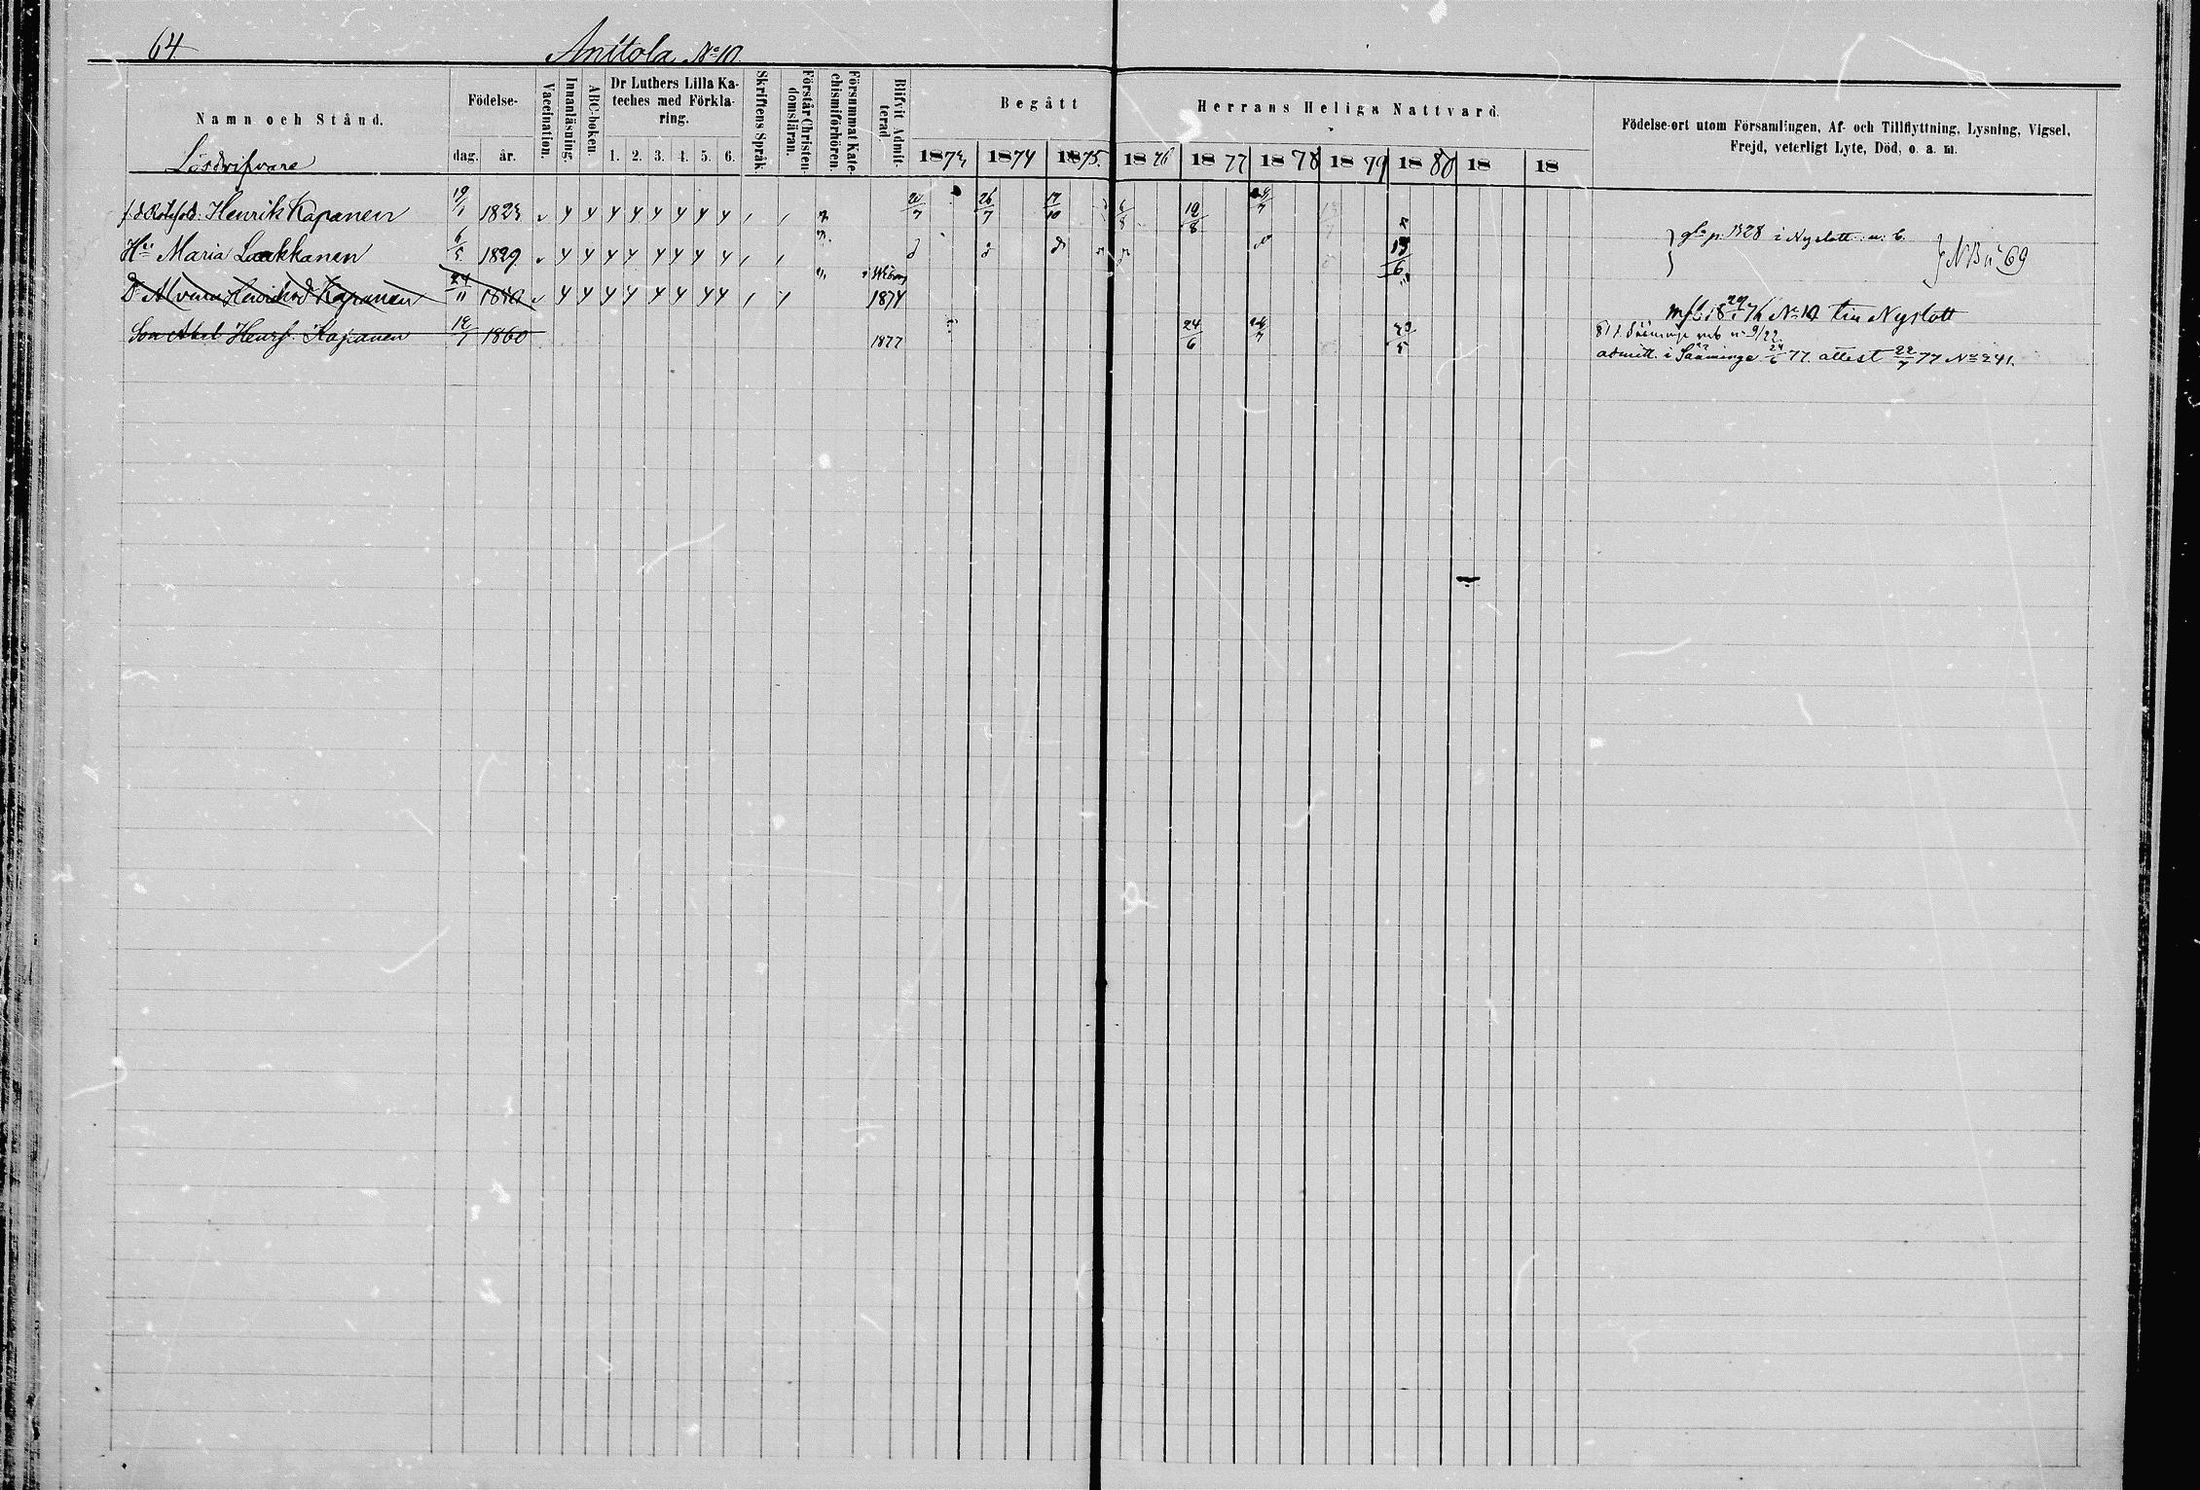 64.
Anttola No 10
Namn och Stånd.
Födelse-
dag. år.
Vaccination.
Innanläsning.
ABC-boken.
Dr Luthers Lilla Ka-
teches med Förkla-
ring.
1. 2. 3. 4. 5. 6.
Skriftens Språk
Förstår Christen-
domsläran.
Försummat Kate-
chismiförhören.
Blifvit Admit-
terad.
Begått
Herrans Heliga Nattvard.
1873 1874 1875. 1876 1877 1878 1879 1880 18 18
Födelse-ort utom Församlingen, Af- och Tillflyttning, Lysning, Vigsel,
Frejd, veterligt Lyte, Död, o. a. m.
Lösdrifvare
Henrik Kapanen 19/1 1823 20/7 26/7 17/10 6/8 19/8
Hu Maria Laakkanen 6/5 1829 13/6
i Nyslott NB 69
D. Alvina Kapanen 24/11 1874
No 10 till Nyslott
Son Abel Henrs. Kapanen 12/7 1860 1877 24/6
admitt. i Sääminge 24/6 77 attest 22/7 77 No 241.